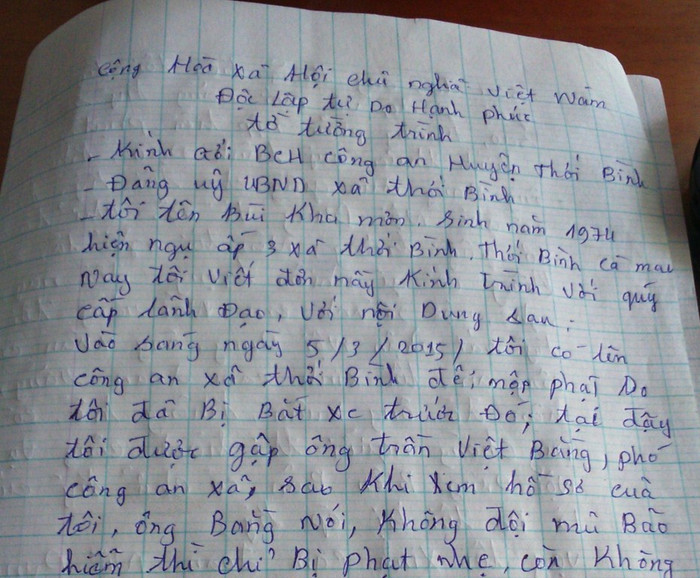 cộng Hoà xã Hội chủ nghĩa việt Nam
Độc Lập tự Do Hạnh phúc
tờ tường trình
- Kính gởi BCH công an Huyện Thới Bình
- Đảng uỷ UBND xã thới Bình
- tôi tên Bùi Kha mơn. sinh năm 1974
hiện ngụ ấp 3 xã thới Bình. Thới Bình cà mau
Nay tôi viết đơn nầy Kính trình với quý
cấp Lảnh Đạo, với nội Dung sau:
vào sáng ngày 5/3/2015/ tôi có lên
công an xã thới Bình để nộp phạt Do
tôi đã Bị Bắt xe trước Đó; tại đây
tôi được gặp ông trần việt Bằng, phó
công an xã, sau khi xem hồ sơ của
tôi, ông Bằng Nói, Không đội mũ Bảo
hiểm thì chỉ Bị phạt nhẹ, còn Không